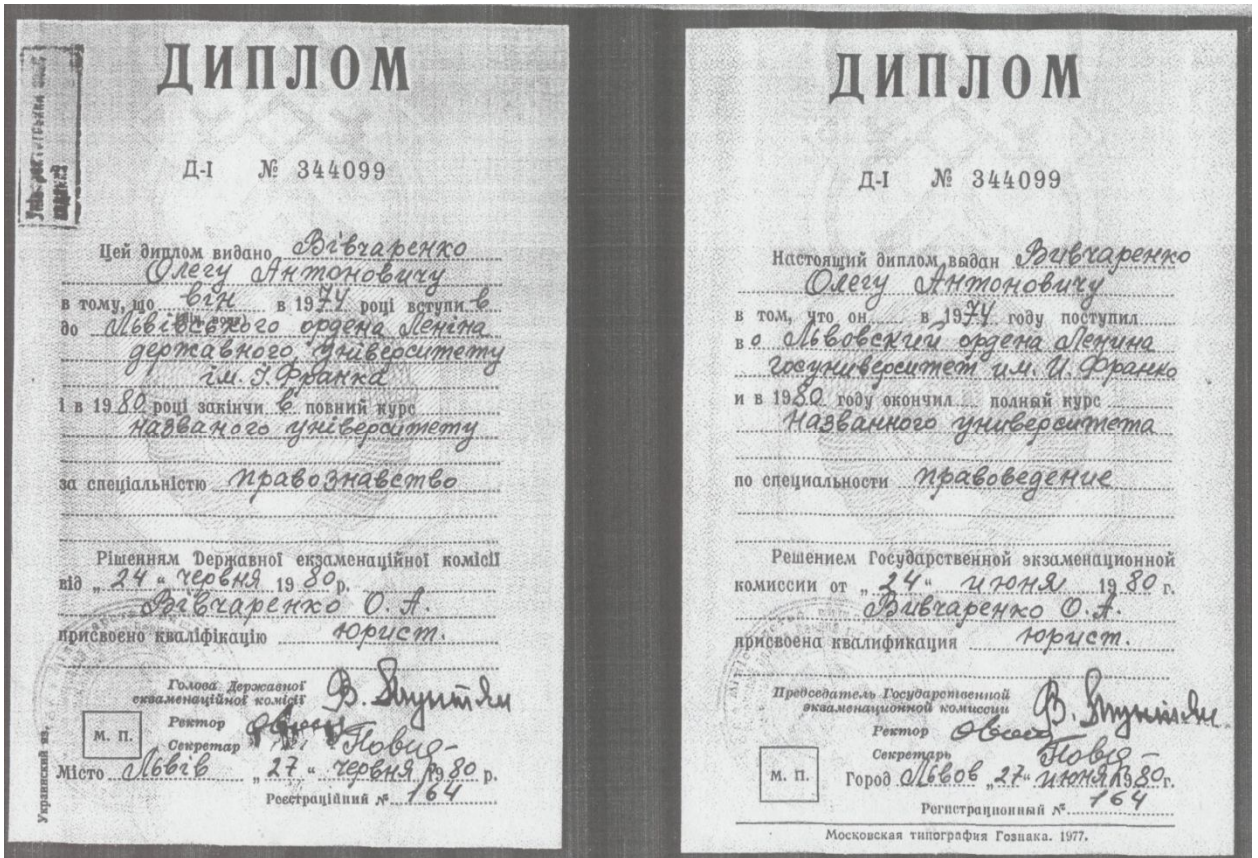 ДИПЛОМ
Д-I № 344099
Цей диплом видано Вівчаренко
Олегу Антоновичу
в тому, що він в 1974 році вступив
до Львівського ордена Леніна
державного університету
ім. І. Франка
і в 1980 році закінчив повний курс
названого університету
за спеціальністю правознавство
Рішенням Державної екзаменаційної комісії
від „24“ червня 1980 р.
Вівчаренко О. А.
присвоєно кваліфікацію юрист.
Голова Державної
екзаменаційної комісії
Ректор
М. П.
Секретар
Місто Львів „27“ червня 1980 р.
Реєстраційний № 164
Украинский яз.
ДИПЛОМ
Д-I № 344099
Настоящий диплом выдан Вивчаренко
Олегу Антоновичу
в том, что он в 1974 году поступил
в о Львовский ордена Ленина
госуниверситет им. И. Франко
и в 1980 году окончил полный курс
названного университета
по специальности правоведение
Решением Государственной экзаменационной
комиссии от „24“ июня 1980 г.
Вивчаренко О. А.
присвоена квалификация юрист.
Председатель Государственной
экзаменационной комиссии
Ректор
Секретарь
М. П.
Город Львов „27“ июня 1980 г.
Регистрационный № 164
Московская типография Гознака. 1977.